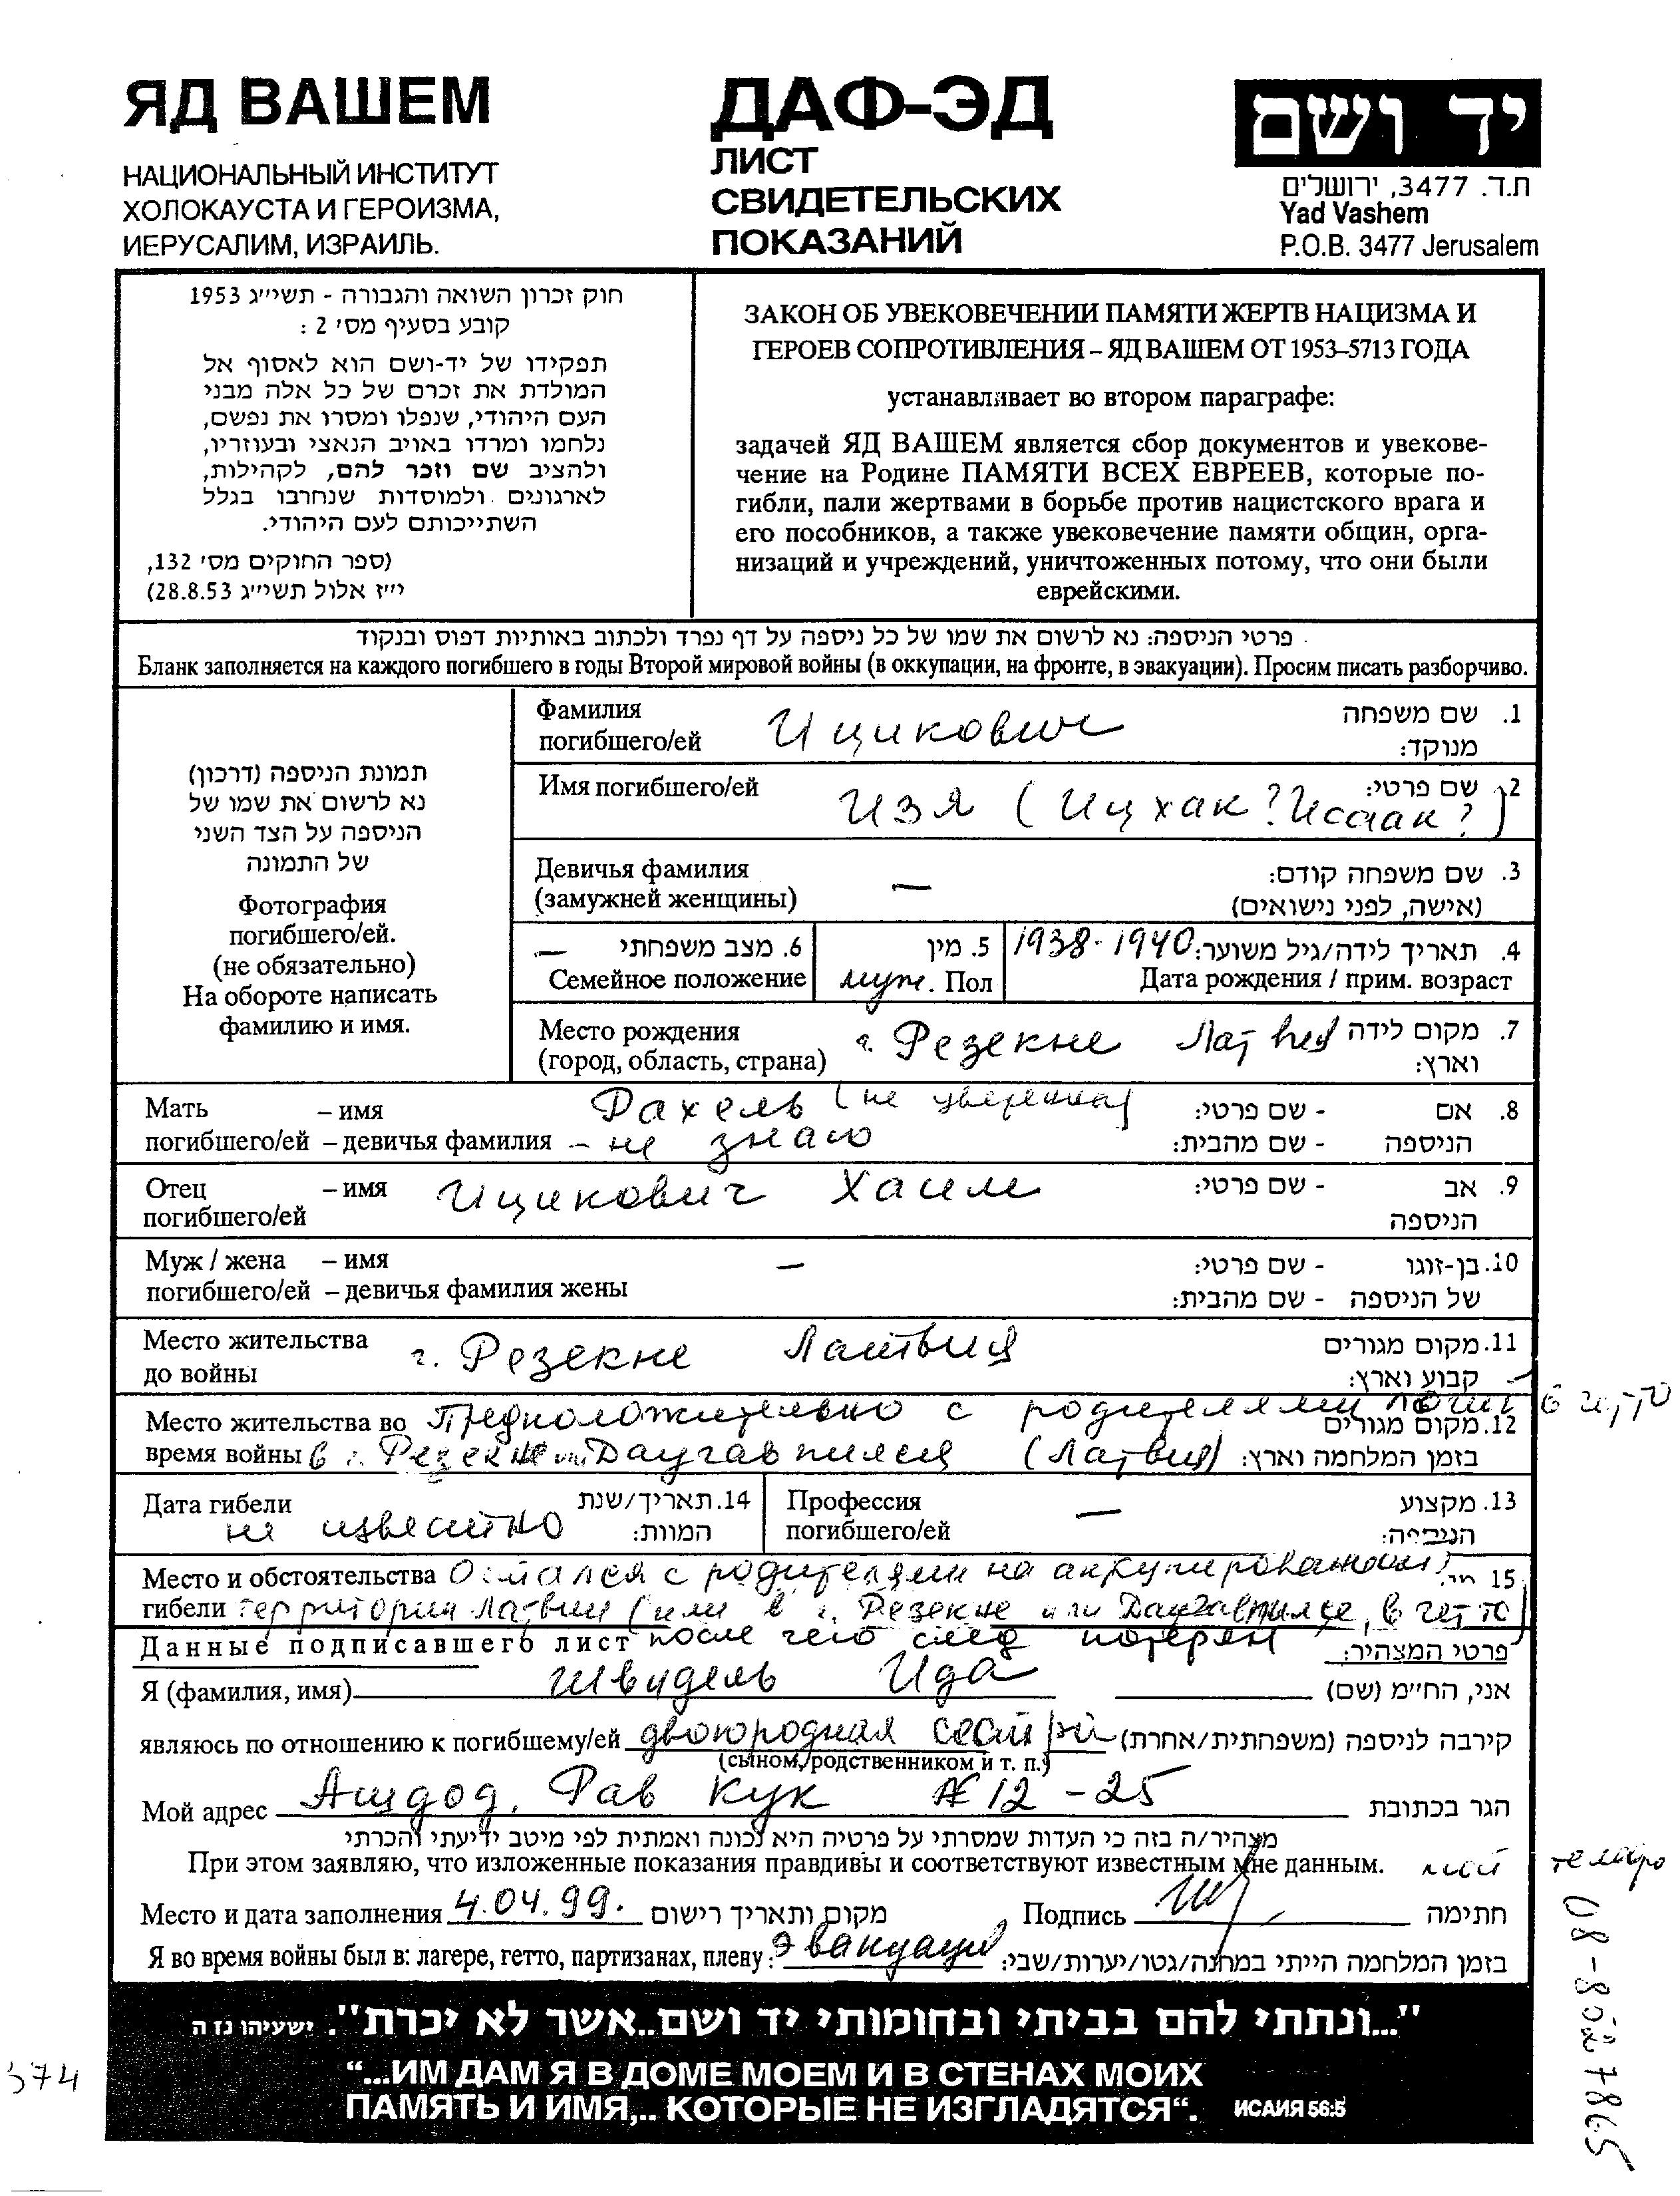 ЯД ВАШЕМ
НАЦИОНАЛЬНЫЙ ИНСТИТУТ
ХОЛОКАУСТА И ГЕРОИЗМА,
ИЕРУСАЛИМ, ИЗРАИЛЬ.
ДАФ-ЭД
ЛИСТ
СВИДЕТЕЛЬСКИХ
ПОКАЗАНИЙ
יד ושם
ת.ד. 3477, ירושלים
Yad Vashem
P.O.B. 3477 Jerusalem
חוק זכרון השואה והגבורה - תשי״ג 1953
קובע בסעיף מס׳ 2 :
תפקידו של יד-ושם הוא לאסוף אל
המולדת את זכרם של כל אלה מבני
העם היהודי, שנפלו ומסרו את נפשם,
נלחמו ומרדו באויב הנאצי ובעוזריו,
ולהציב שם וזכר להם, לקהילות,
לארגונים ולמוסדות שנחרבו בגלל
השתייכותם לעם היהודי.
(ספר החוקים מס׳ 132,
י״ז אלול תשי״ג 28.8.53)
ЗАКОН ОБ УВЕКОВЕЧЕНИИ ПАМЯТИ ЖЕРТВ НАЦИЗМА И
ГЕРОЕВ СОПРОТИВЛЕНИЯ – ЯД ВАШЕМ ОТ 1953–5713 ГОДА
устанавливает во втором параграфе:
задачей ЯД ВАШЕМ является сбор документов и увекове-
чение на Родине ПАМЯТИ ВСЕХ ЕВРЕЕВ, которые по-
гибли, пали жертвами в борьбе против нацистского врага и
его пособников, а также увековечение памяти общин, орга-
низаций и учреждений, уничтоженных потому, что они были
еврейскими.
פרטי הניספה: נא לרשום את שמו של כל ניספה על דף נפרד ולכתוב באותיות דפוס ובנקוד
Бланк заполняется на каждого погибшего в годы Второй мировой войны (в оккупации, на фронте, в эвакуации). Просим писать разборчиво.
תמונת הניספה (דרכון)
נא לרשום את שמו של
הניספה על הצד השני
של התמונה
Фотография
погибшего/ей.
(не обязательно)
На обороте написать
фамилию и имя.
Фамилия Ицикович 1. שם משפחה
погибшего/ей מנוקד:
Имя погибшего/ей Изя (Ицхак? Исаак?) 2. שם פרטי:
Девичья фамилия — 3. שם משפחה קודם:
(замужней женщины) (אישה, לפני נישואים)
— 6. מצב משפחתי 5. מין 1938-1940 4. תאריך לידה/גיל משוער:
Семейное положение муж. Пол Дата рождения / прим. возраст
Место рождения г. Резекне Латвия 7. מקום לידה
(город, область, страна) וארץ:
Мать – имя Рахель (не уверенна) 8. אם - שם פרטי:
погибшего/ей – девичья фамилия – не знаю הניספה - שם מהבית:
Отец – имя Ицикович Хаим 9. אב - שם פרטי:
погибшего/ей הניספה
Муж / жена – имя — 10. בן-זוגו - שם פרטי:
погибшего/ей – девичья фамилия жены של הניספה - שם מהבית:
Место жительства г. Резекне Латвия 11. מקום מגורים
до войны קבוע וארץ:
Место жительства во Предположительно с родителями погиб в гетто 12. מקום מגורים
время войны в г. Резекне или Даугавпился (Латвия) בזמן המלחמה וארץ:
Дата гибели 14. תאריך/שנת Профессия — 13. מקצוע
не известно המוות: погибшего/ей הניספה:
Место и обстоятельства Остался с родителями на аккупированной 15
гибели территории Латвии (или в г. Резекне или Даугавпилсе, в гетто)
Данные подписавшего лист после чего след потерян פרטי המצהיר:
Я (фамилия, имя) Швидель Ида אני, הח״מ (שם)
являюсь по отношению к погибшему/ей двоюродная сестра קירבה לניספה (משפחתית/אחרת)
(сыном, родственником и т. п.)
Мой адрес Ашдод, Рав Кук № 12 - 25 הגר בכתובת
מצהיר/ה בזה כי העדות שמסרתי על פרטיה היא נכונה ואמתית לפי מיטב ידיעתי והכרתי
При этом заявляю, что изложенные показания правдивы и соответствуют известным мне данным.
мой
08-8527865
Место и дата заполнения 4.04.99. מקום ותאריך רישום Подпись חתימה
Я во время войны был в: лагере, гетто, партизанах, плену: Эвакуации בזמן המלחמה הייתי במחנה/גטו/יערות/שבי:
"...ונתתי להם בביתי ובחומותי יד ושם...אשר לא יכרת". ישעיהו נז ה
“...ИМ ДАМ Я В ДОМЕ МОЕМ И В СТЕНАХ МОИХ
ПАМЯТЬ И ИМЯ,.. КОТОРЫЕ НЕ ИЗГЛАДЯТСЯ“. ИСАИЯ 56:5
374